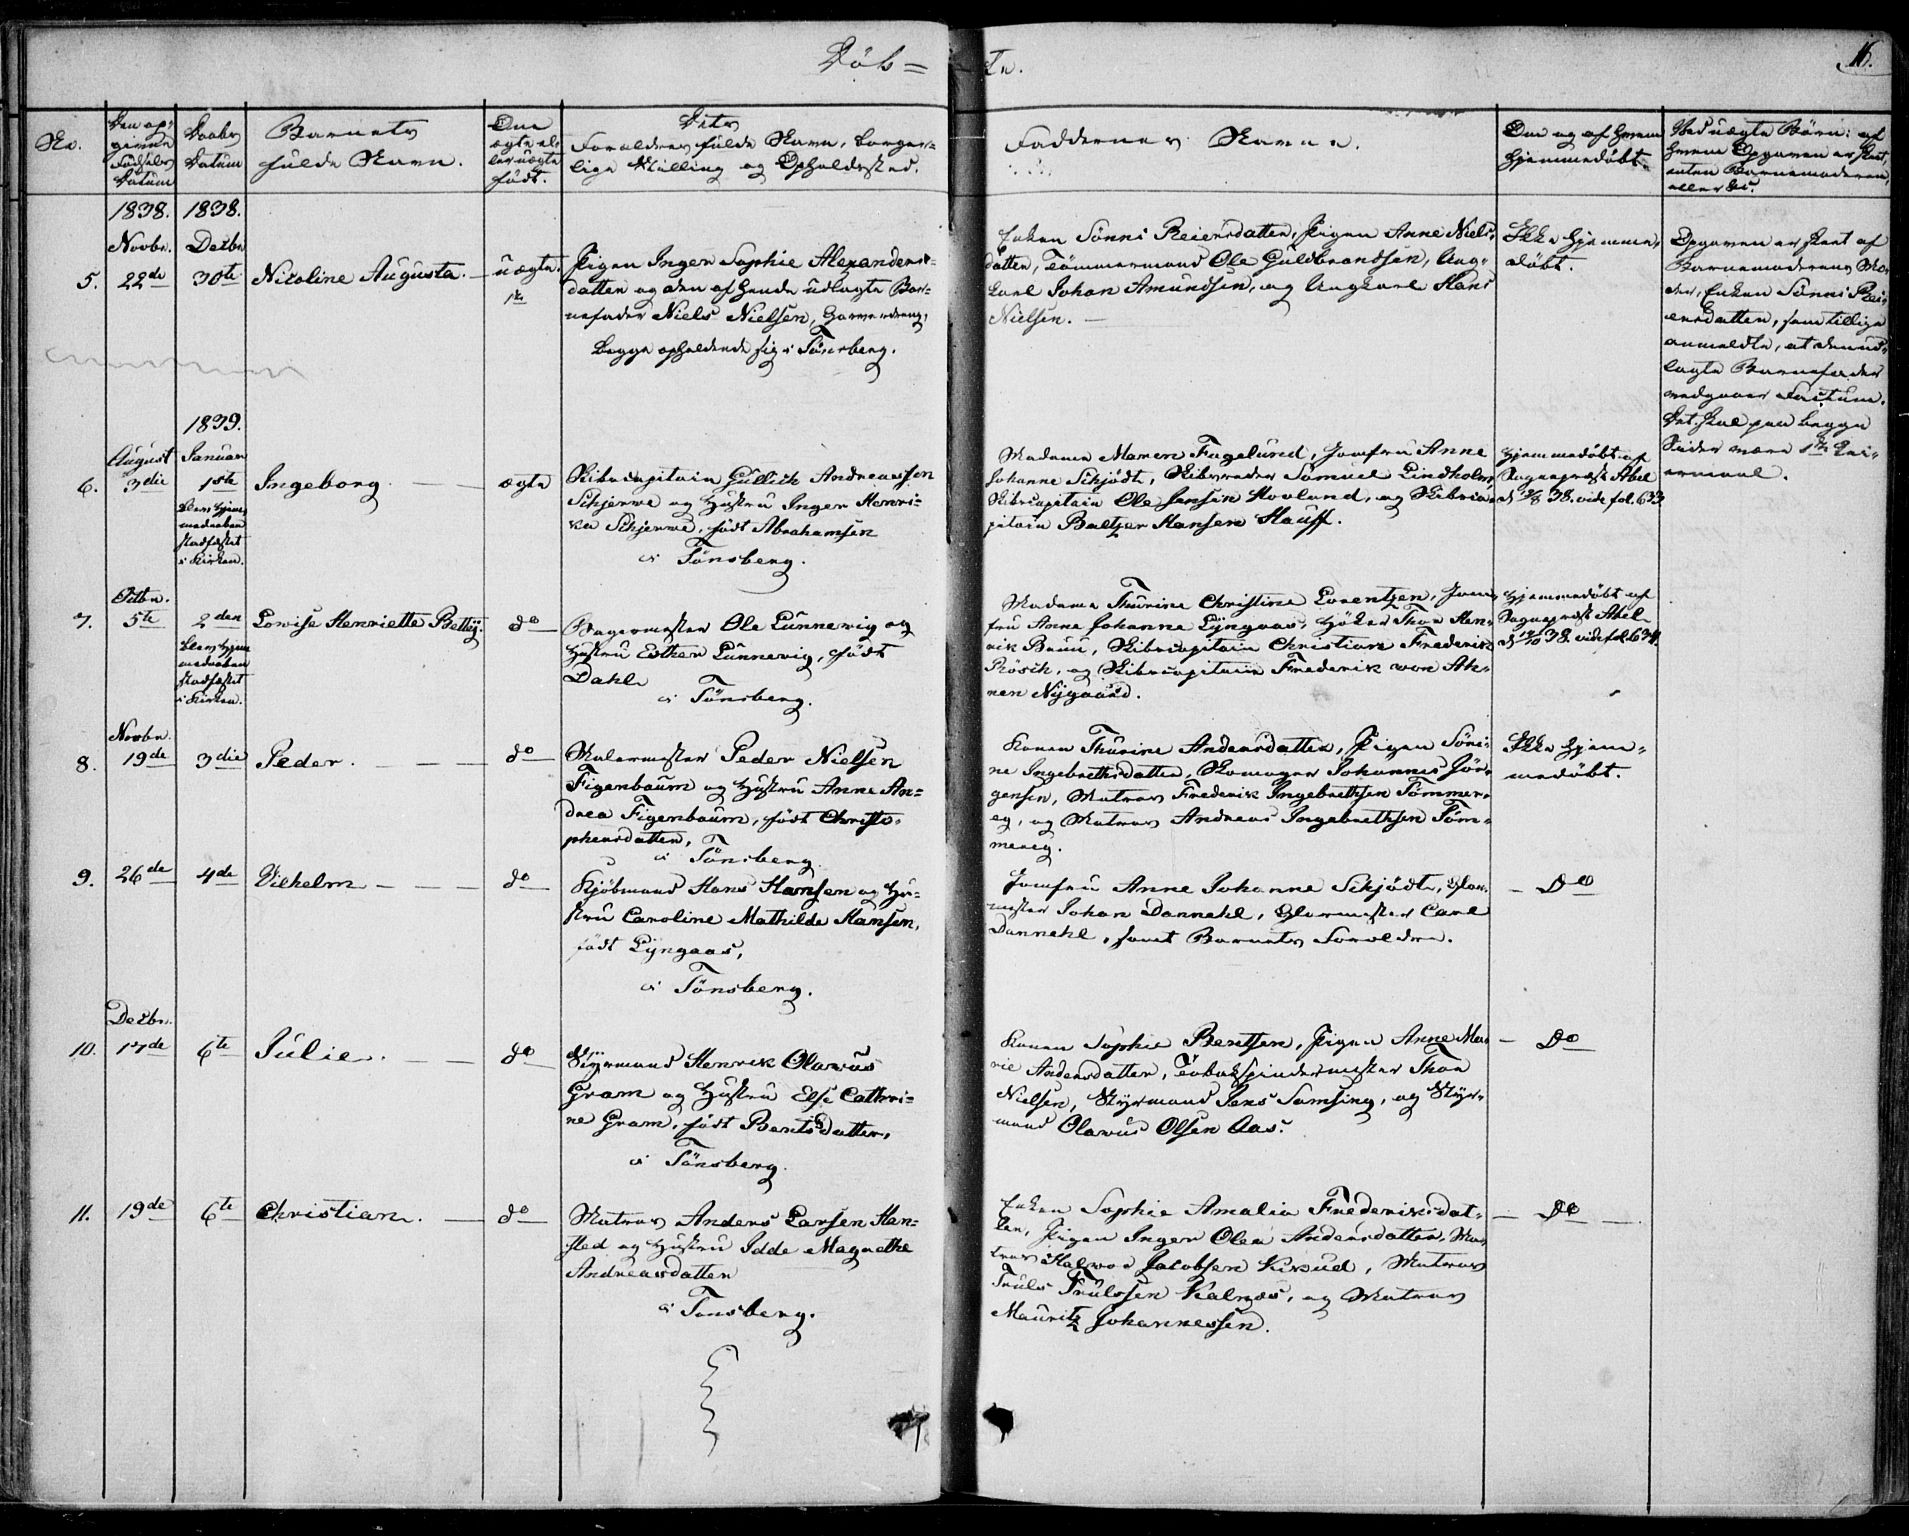 Döb=
te.
16.
No.
Den op-
givne
Fødsels
Datum
Daabs
Datum
Barnets
fulde Navn.
Om
ægte el-
ler uægte
født.
Dets
Forældres fulde Navn, borger-
lige Stilling og Opholdssted.
Faddernes Navne.
Om og af hvem
hjemmedøbt.
Ved uægte Børn: af
hvem Opgaven er skeet,
enten Barnemoderen,
eller
1838. 1838.
Novbr. Decbr
5. 22de 30te Nicoline Augusta. uægte.
1ste
Pigen Inger Sophie Alexanders-
datter og den af hende udlagte Bar-
nefader Niels Nielsen, Garverdreng,
begge opholdende sig i Tönsberg.
Enken Sønni Reiersdatter, Pigen Anne Niels-
datter, Tømmermand Ole Guldbrandsen, Ung-
karl Johan Amundsen, og Ungkarl Hans
Nielsen.
Ikke hjemme-
døbt.
Opgaven er skeet af
Barnemoderens Mo-
der, Enken Sønni Rei-
ersdatter, som tillige
anmeldte, at den ud-
lagte Barnefader
vedgaaer Factum.
Det skal paa begge
Sider være 1ste Lei-
ermaal.
1839.
August Januar
6. 3die 1ste Ingeborg. ægte
Blev hjem-
medaaben
stadfæstet
i Kirken.
Skibscapitain Gullich Andreassen
Schjerve og Hustru Inger Henri-
ka Schjerve, født Abrahamsen
i Tönsberg.
Madame Maren Fagelund, Jomfru Anne
Johanne Schjødt, Skibsreder Samuel Lindholm,
Skibscapitain Ole Jensen Hovland, og Skibsca-
pitain Baltzer Hansen Hauff.
hjemmedøbt af
Sognepræst Abel
38. vide fol. 633.
Octbr.
7. 5te 2den Lovise Henriette Bettÿ. do
Blev hjem-
medaaben
stadfæstet
i Kirken.
Bagermester Ole Lunnevig og
Hustru Esther Lunnevig, født
Dahl
i Tönsberg.
Madame Thurine Christine Lorentzen, Jom-
fru Anne Johanne Lÿngaas, Høker Thor Hen-
rik Bruu, Skibscapitain Christian Frederik
Rösch, og Skibscapitain Frederik von Ah-
nen Nÿgaard.
hjemmedøbt af
Sognepræst Abel
38. vide fol. 634.
Novbr.
8. 19de 3die Peder. do
Malermester Peder Nielsen
Figenbaum og Hustru Anne An-
drea Figenbaum, født Christo-
phersdatter,
i Tönsberg.
Konen Thurine Andersdatter, Pigen Søri-
ne Ingebrethsdatter, Skomager Johannes Jör-
gensen, Matros Frederik Ingebrethsen Tömmer-
eg, og Matros Andreas Ingebrethsen Töm-
mereg.
Ikke hjem-
medøbt.
9. 26de 4de Vilhelm do
Kjøbmand Hans Hansen og Hu-
stru Caroline Mathilde Hansen,
født Lÿngaas,
i Tönsberg.
Jomfru Anne Johanne Schjödt, Glar-
mester Johan Dannehl, Glarmester Carl
Dannehl, samt Barnets Forældre.
Do
Decbr.
10. 17de 6te Julie. do
Stÿrmand Henrik Olavus
Gram og Hustru Else Cathri-
ne Gram, født Bentsdatter,
i Tönsberg.
Konen Sophie Bentsen, Pigen Anne Ma-
rie Andersdatter, Tobakspindermester Thor
Nielsen, Stÿrmand Jens Samsing, og Stÿr-
mand Olavus Olsen Aas.
Do
11. 19de 6te Christian. do
Matros Anders Larsen Han-
sted og Hustru Idde Magrethe
Andreasdatter
i Tonsberg.
Enken Sophie Amalia Frederiksdat-
ter, Pigen Inger Olea Andersdatter, Ma-
tros Halvor Jacobsen Kirud, Matros
Truls Trulssen Kalnæs, og Matros
Mauritz Johannessen.
Do